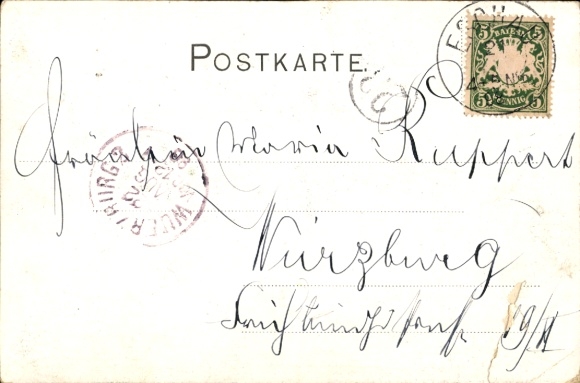 POSTKARTE
BAYERN
5 5
5 PFENNIG 5
WÜRZBURG
Fräulein Maria Ruppert
Würzburg
19/II